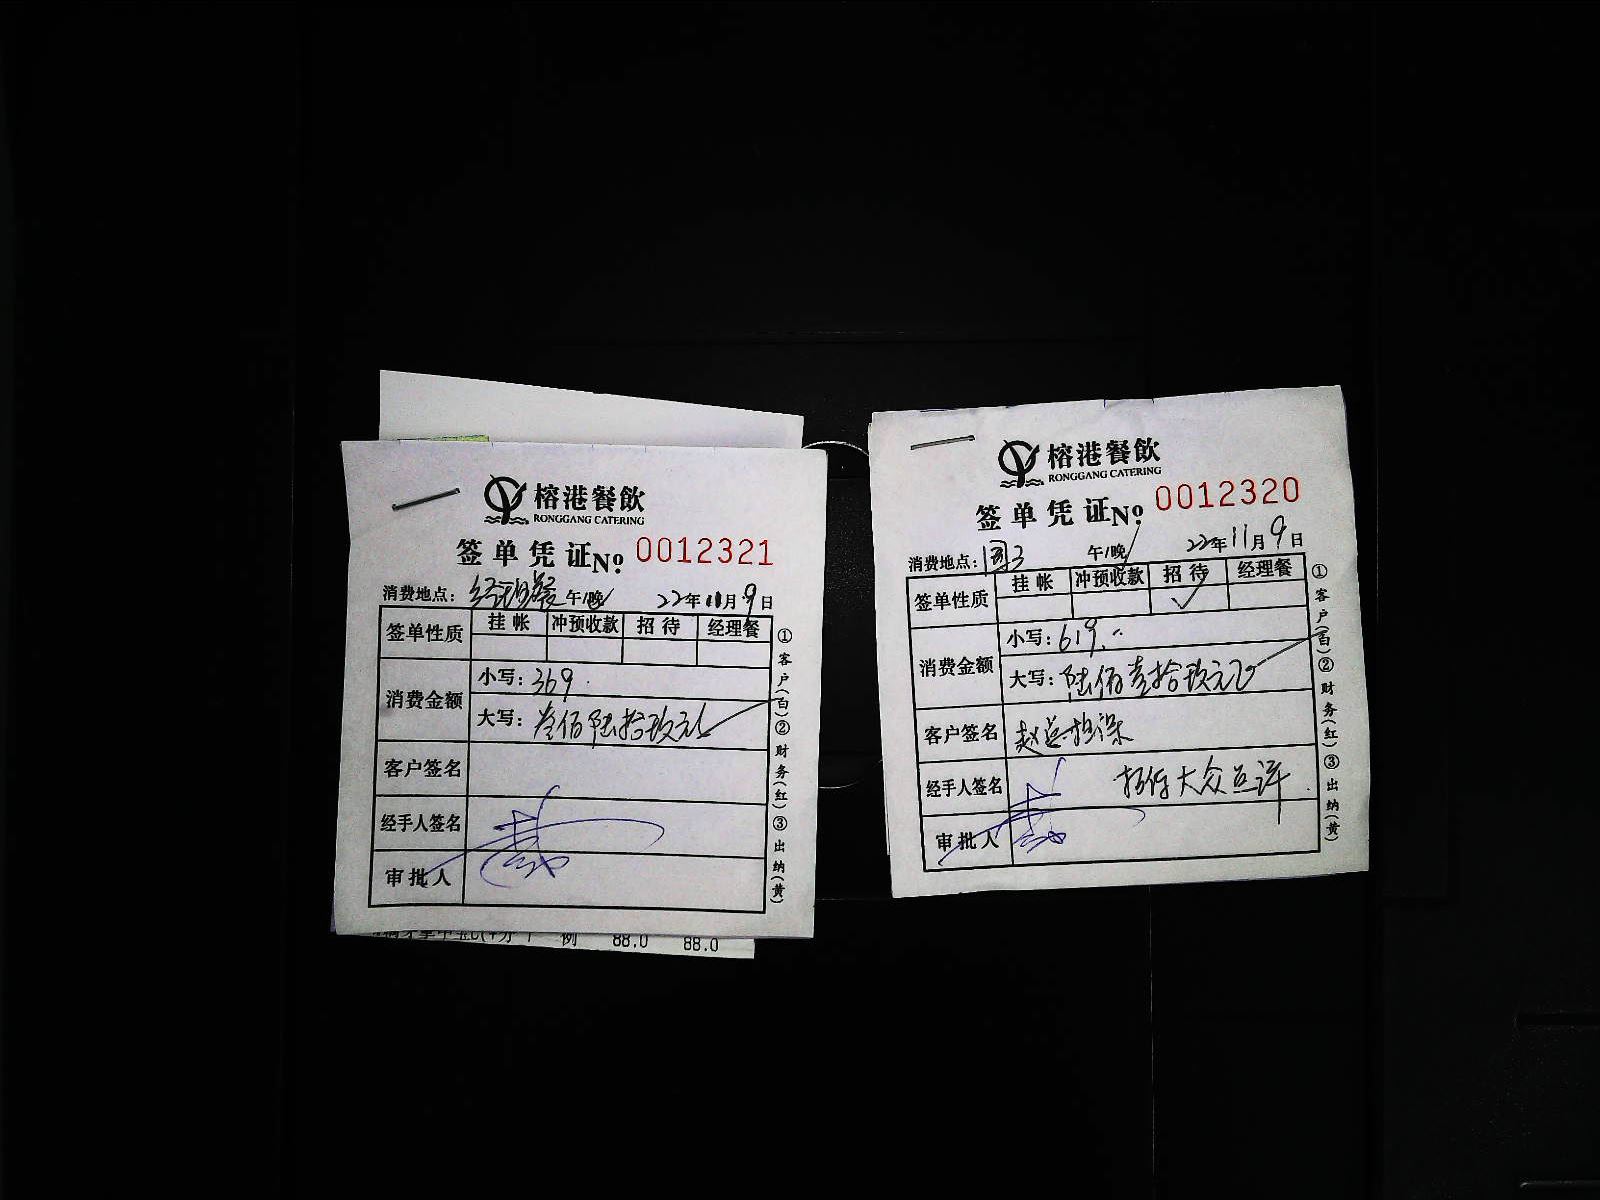 榕港餐飲
RONGGANG CATERING
签单凭证No: 0012321
消费地点: 经理餐 午/晚 22年11月9日
签单性质 挂帐 冲预收款 招待 经理餐
消费金额
小写: 369.
大写: 叁佰陆拾玖元
客户签名
经手人签名
审批人
①客户(白)②财务(红)③出纳(黄)
例 88.0 88.0
榕港餐飲
RONGGANG CATERING
签单凭证No: 0012320
消费地点: 午/晚 22年11月9日
签单性质 挂帐 冲预收款 招待 经理餐
✓
消费金额
小写: 619.
大写: 陆佰壹拾玖元
客户签名 赵总担保
经手人签名 招待大众点评
审批人
①客户(白)②财务(红)③出纳(黄)